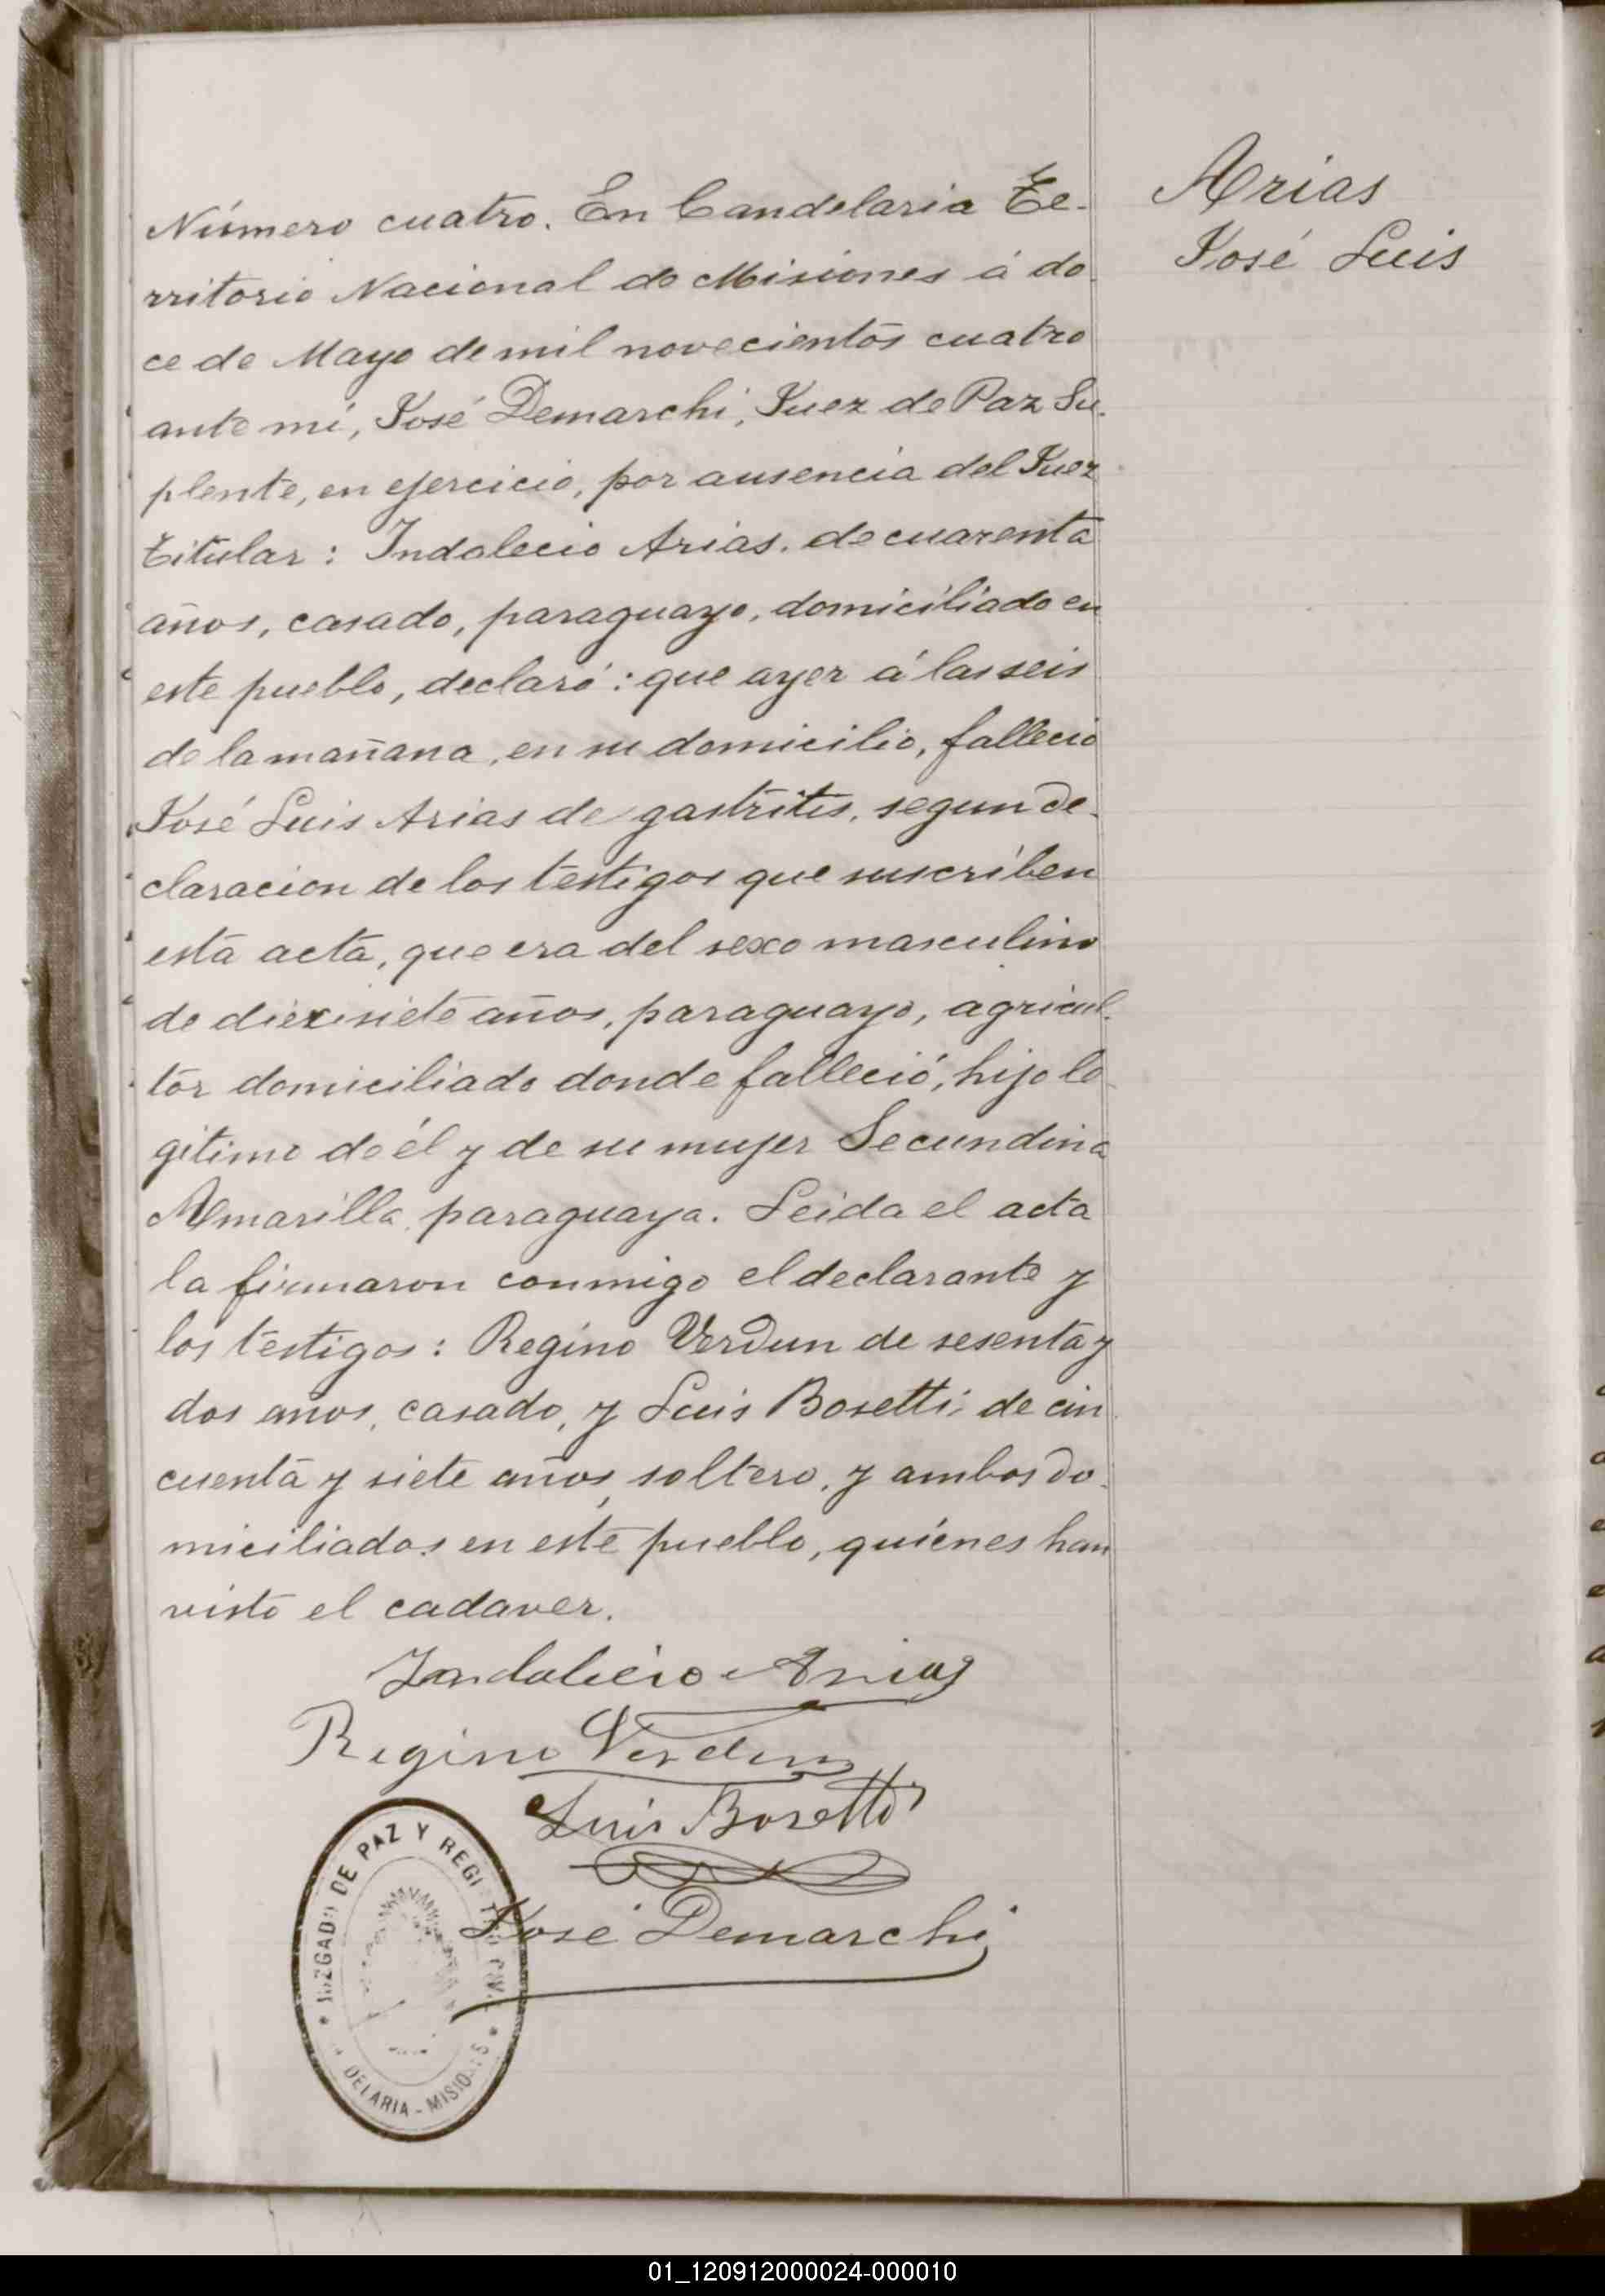 Arias
José Luis
Número cuatro. En Candelaria Te-
rritorio Nacional de Misiones á do-
ce de Mayo de mil novecientos cuatro
ante mí, José Demarchi, Juez de Paz Su-
plente, en ejercicio, por ausencia del Juez
Titular: Indalecio Arias, de cuarenta
años, casado, paraguayo, domiciliado en
este pueblo, declaró: que ayer á las seis
de la mañana, en su domicilio, falleció
José Luis Arias de gastritis, segun de-
claracion de los testigos que suscriben
esta acta, que era del sexo masculino
de diezisiete años, paraguayo, agricul-
tor domiciliado donde falleció, hijo le-
gitimo de él y de su mujer Secundina
Amarilla, paraguaya. Leida el acta
la firmaron conmigo el declarante y
los testigos: Regino Verdun de sesenta y
dos años, casado, y Luis Bosetti, de cin-
cuenta y siete años, soltero, y ambos do-
miciliados en este pueblo, quiénes han
visto el cadaver.
Indalecio Arias
Regino Verdun
Luis Bosetti
José Demarchi
JUZGADO DE PAZ Y REGI
DELARIA - MISIO
01_120912000024-000010